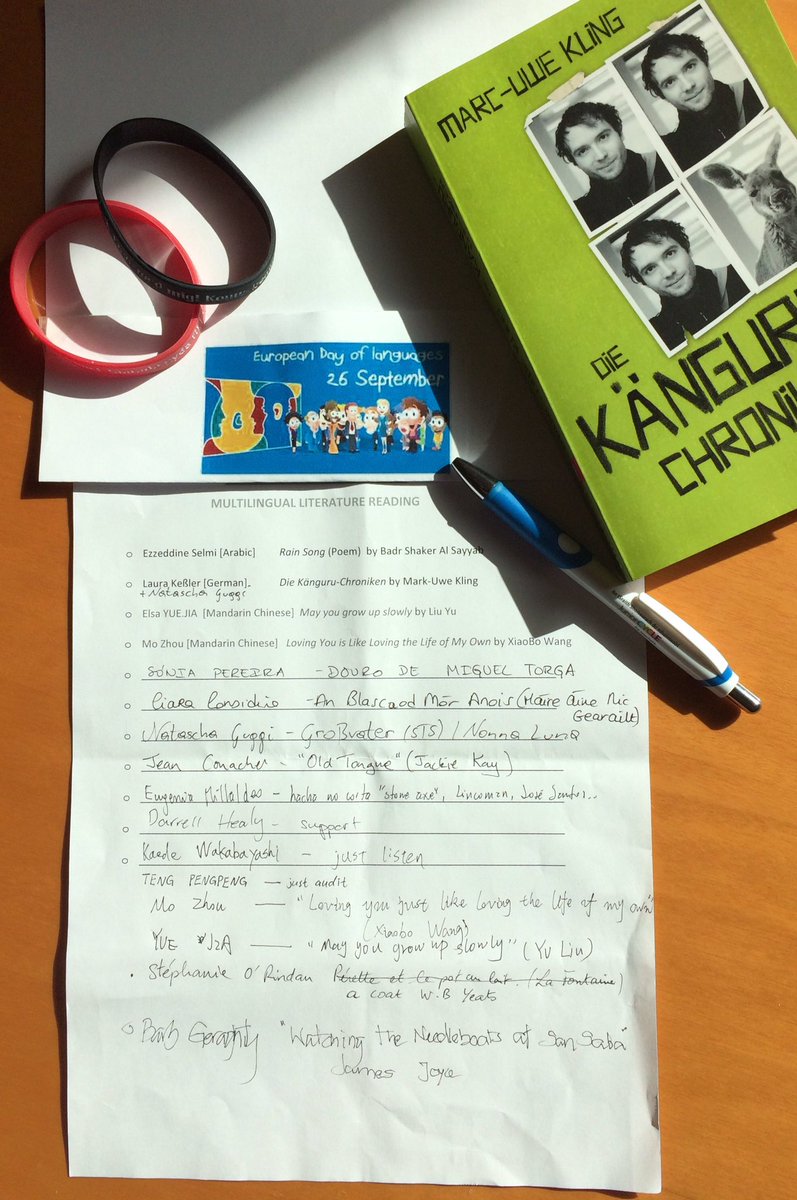 MARC-UWE KLING
DIE
KÄNGURU
CHRONIK
European Day of languages
26 September
MULTILINGUAL LITERATURE READING
Ezzeddine Selmi [Arabic] Rain Song (Poem) by Badr Shaker Al Sayyab
Laura Keßler [German]. Die Känguru-Chroniken by Mark-Uwe Kling
+ Natascha Guggi
Elsa YUE.JIA [Mandarin Chinese] May you grow up slowly by Liu Yu
Mo Zhou [Mandarin Chinese] Loving You is Like Loving the Life of My Own by XiaoBo Wang
SÓNIA PEREIRA - DOURO DE MIGUEL TORGA
Ciara Considine - An Blascaod Mór Anois (Máire Áine Nic
Gearailt)
Natascha Guggi - Großvater (STS) / Nonna Luna
Jean Conacher - "Old Tongue" (Jackie Kay)
Eugenia Millaldeo - hacha no "stone axe", Lincoman, José Santos..
Darrell Healy - support
Kaede Wakabayashi - just listen
TENG PENGPENG - just audit
Mo Zhou - "Loving you just like loving the life of my own"
(Xiaobo Wang)
YUE JIA - "May you grow up slowly" (Yu Liu)
Stéphanie O'Riordan Pérette et le pot au lait. (La Fontaine)
a coat W.B Yeats
Barb Geraghty "Watching the Needleboats at San Saba"
James Joyce